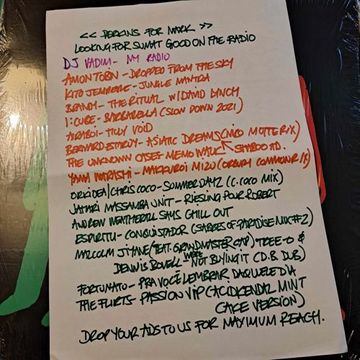 << PERKINS FOR MARK >>
LOOKING FOR SUMAT GOOD ON THE RADIO
DJ VADIM - MY RADIO
AMON TOBIN - DROPPED FROM THE SKY
KITO JEMPERE - JUNGLE MANTRA
BRANDY - THE RITUAL W/ DAVID LYNCH
I:CUBE - BARBARELLA (SLOW DOWN 2021)
AIRABOI - TILLY VOID
BERNARD ESTARDY - ASIATIC DREAMS (
THE UNKNOWN CASES MEMO
YAMA WARASHI - MAKKUROI MIZU (
ORKIDEA/CHRIS COCO - SUMMER DAYZ (C. COCO MIX)
JAHARI MASSAMBA UNIT - RIESLING POUR ROBERT
ANDREW WEATHERALL SAYS CHILL OUT
ESPIRITU - CONQUISTADOR (SABRES OF PARADISE MIX #2)
MALCOLM JIYANE TREE-O &
DENNIS BOVELL NOT BUYING IT (D.B DUB)
FORTUNATO - PRA VOCÊ LEMBRAR DAQUELE DIA
THE FLIRTS - PASSION VIP (ACIDKENDAL MINT
CAKE VERSION)
DROP YOUR AIDS TO US FOR MAXIMUM REACH.